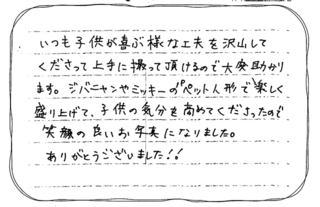 いつも子供が喜ぶ様な工夫を沢山して
くださって上手に撮って頂けるので大変助かり
ます。ジバニャンやミッキーのペット人形で楽しく
盛り上げて、子供の気分を高めてくださったので
笑顔の良いお写真になりました。
ありがとうございました!!